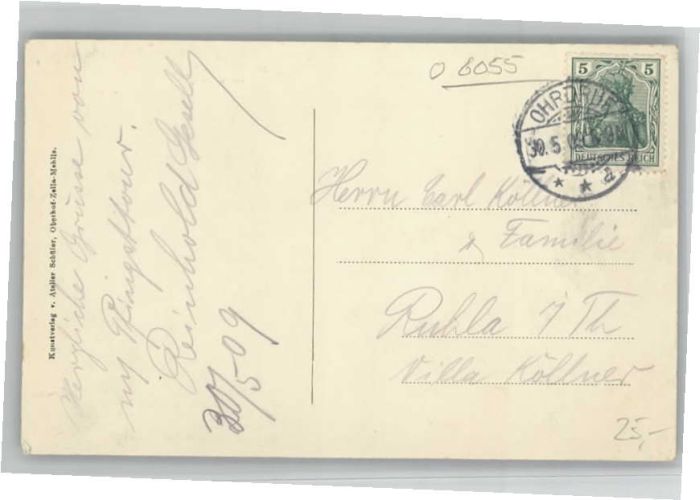 o 6055
5 5
OHRDRUF
30.5.09
DEUTSCHES REICH
* * a
Kunstverlag v. Atelier Schüler, Oberhof-Zella-Mehlis.
Herzliche Grüsse von
Pfingsttour.
Reinhold Gesell
30/5 09
Herrn Carl Köllner
Familie
Ruhla i/Th
Villa Köllner
25,-